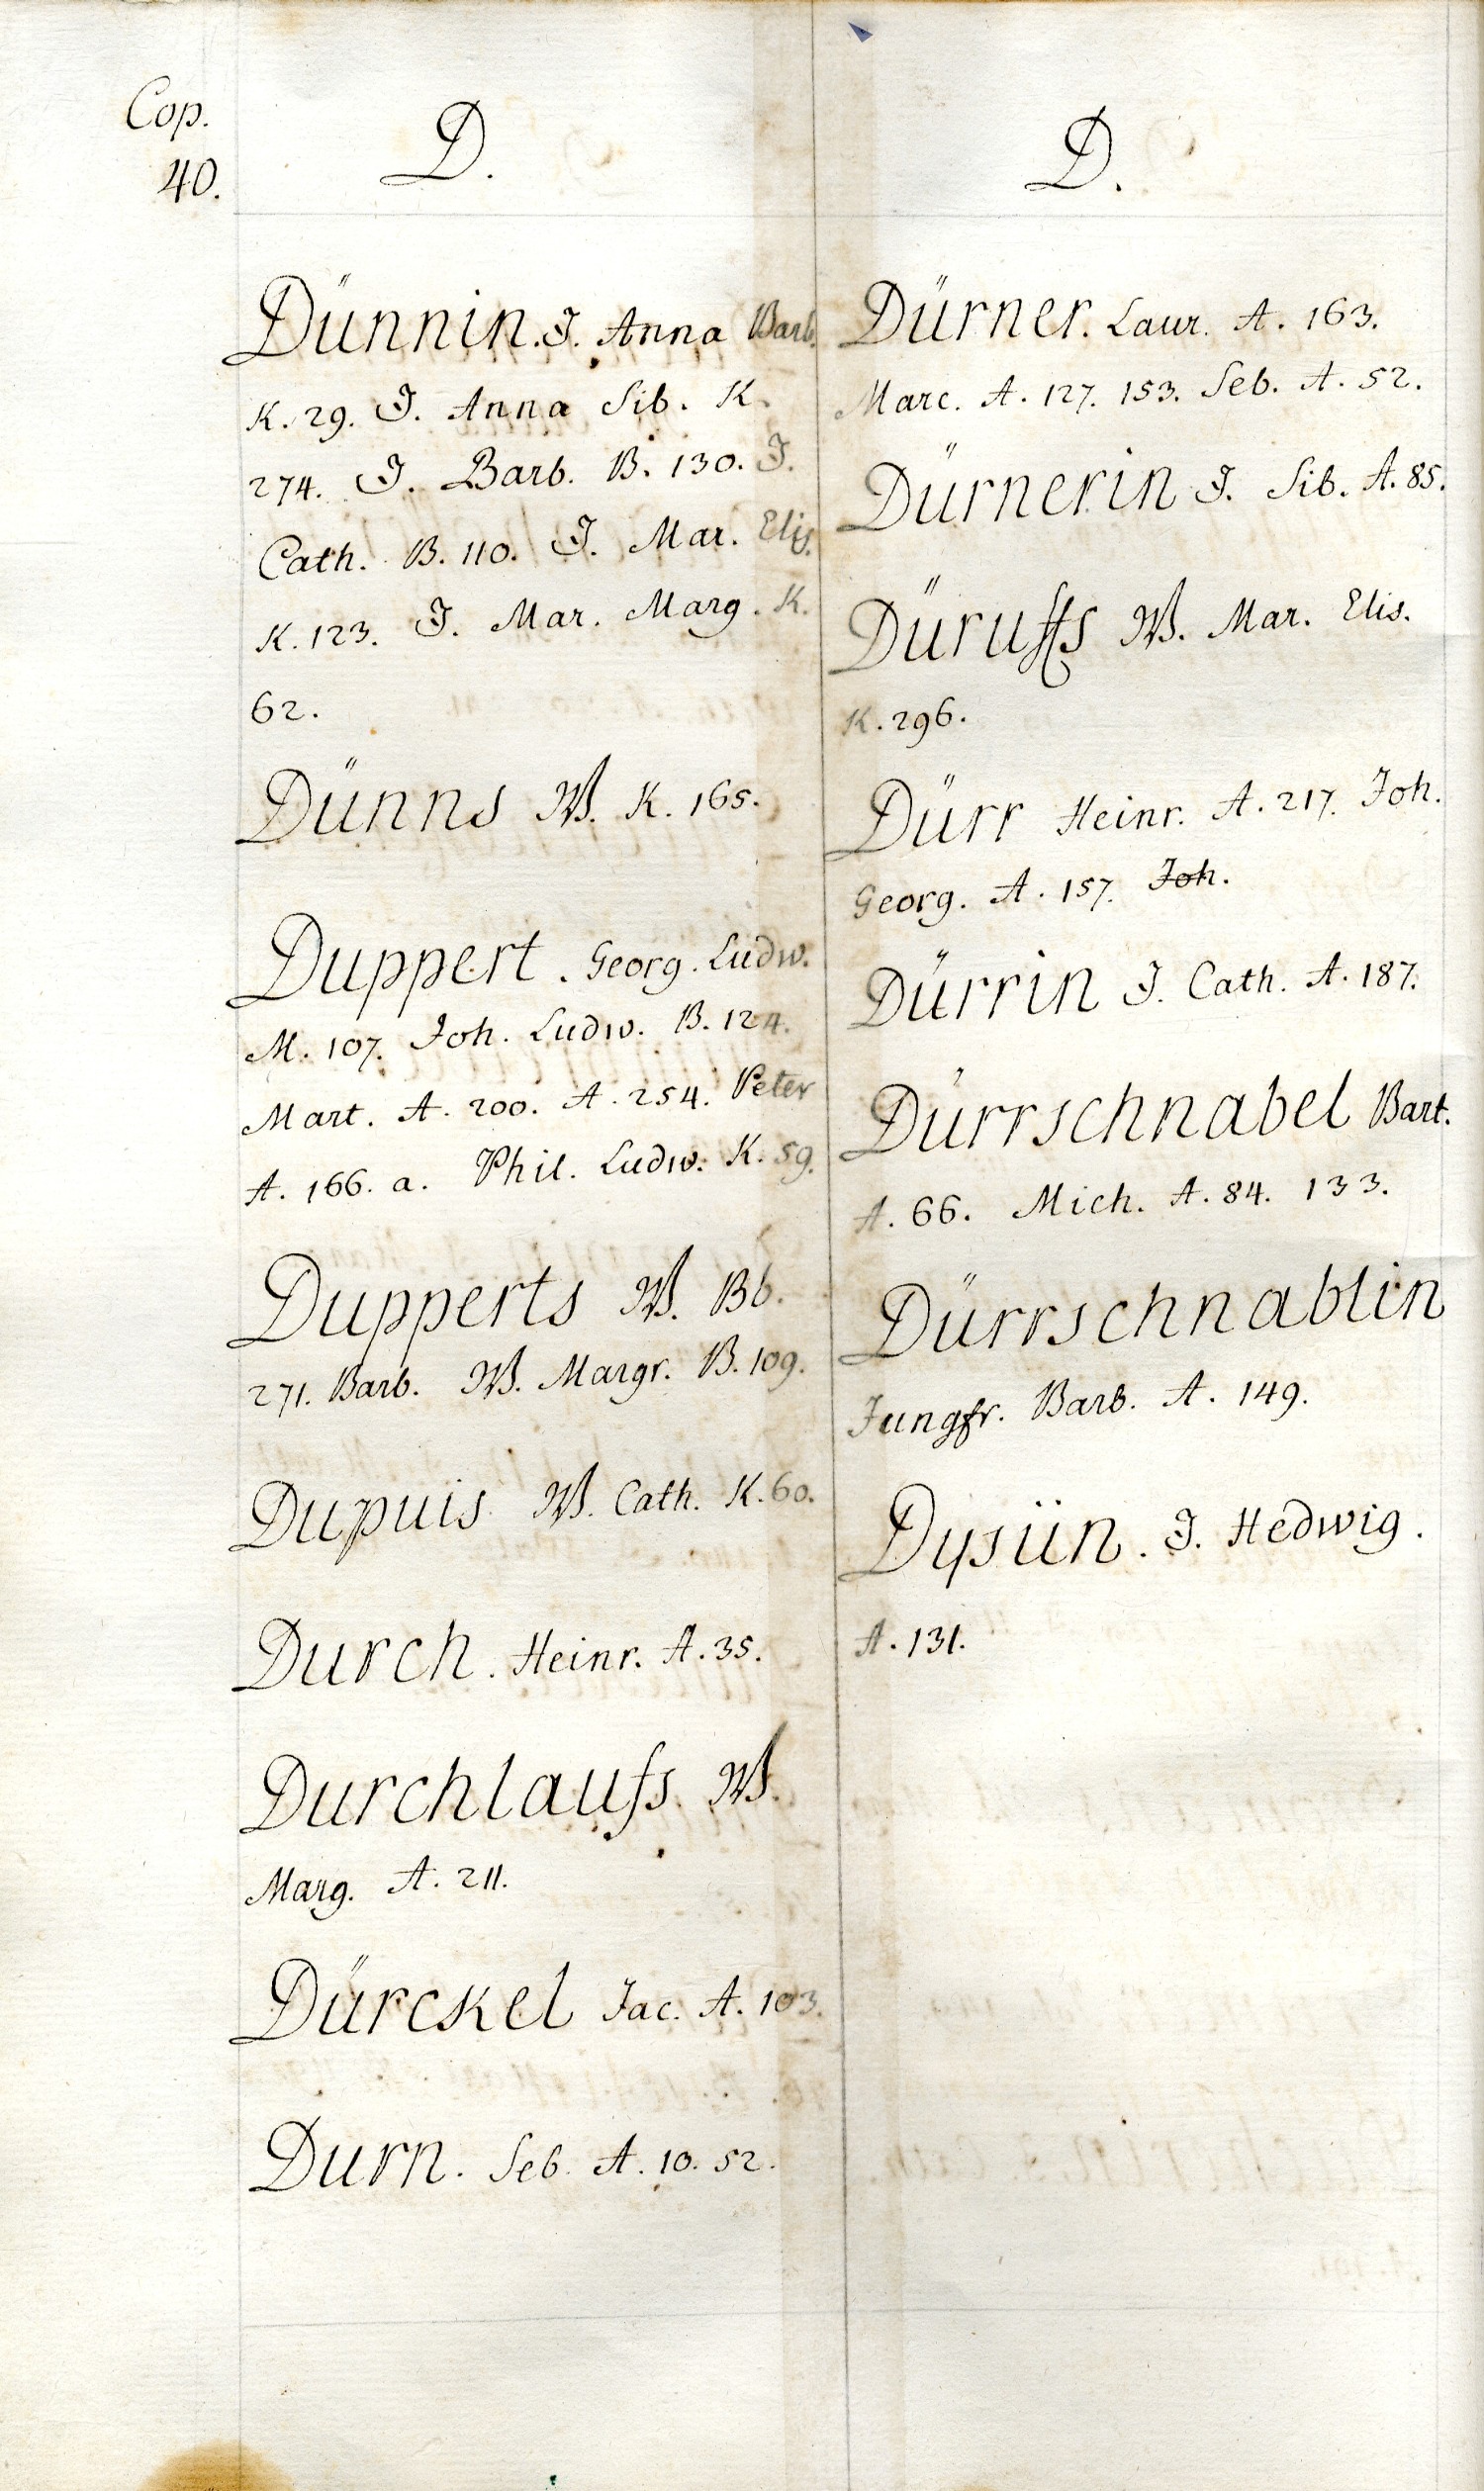 Cop.
40.
D.
Dünnin. J. Anna Barb.
K. 29. J. Anna Sib. K.
274. J. Barb. B. 130. J.
Cath. B. 110. J. Mar. Elis.
K. 123. J. Mar. Marg. K.
62.
Dünns W. K. 165.
Duppert. Georg. Ludw.
M. 107. Joh. Ludw. B. 124.
Mart. A. 200. A. 254. Peter
A. 166. a. Phil. Ludw. K. 59.
Dupperts W. Bb.
271. Barb. W. Margr. B. 109.
Dupuis W. Cath. K. 60.
Durch. Heinr. A. 35.
Durchlaufs W.
Marg. A. 211.
Dürckel Jac. A. 103.
Durn. Seb. A. 10. 52.
D.
Dürner. Laur. A. 163.
Marc. A. 127. 153. Seb. A. 52.
Dürnerin J. Sib. A. 85.
W. Mar. Elis.
K. 296.
Dürr Heinr. A. 217. Joh.
Georg. A. 157. Joh.
Dürrin J. Cath. A. 187.
Dürrschnabel Bart.
A. 66. Mich. A. 84. 133.
Dürrschnablin
Jungfr. Barb. A. 149.
Dysiin. J. Hedwig.
A. 131.